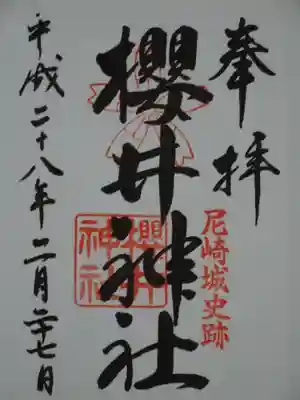 奉拝
尼崎城史跡
櫻井神社
櫻井神社
平成二十八年二月二十七日